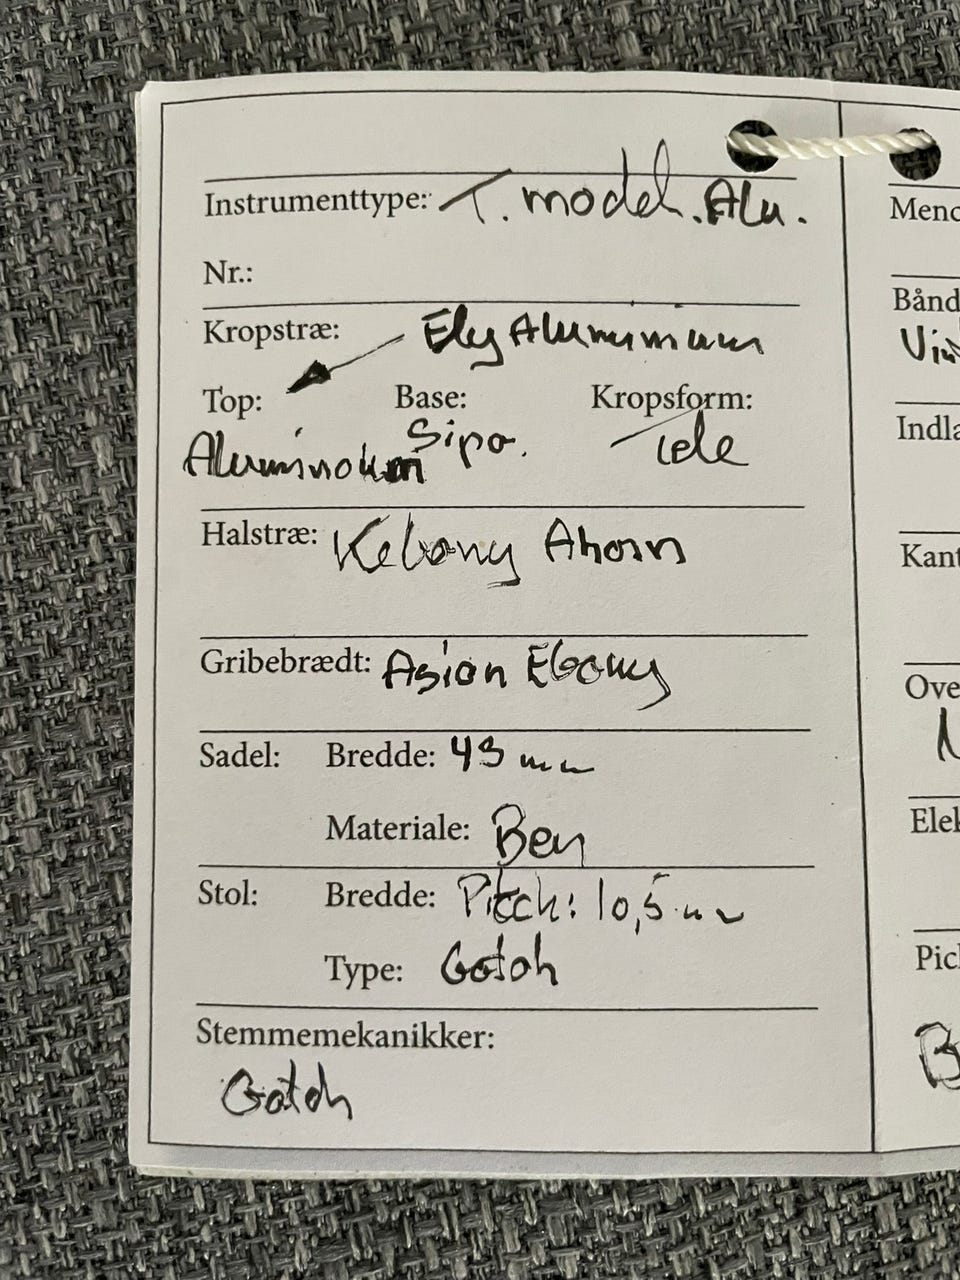 Instrumenttype: T. model. Alu.
Nr.:
Kropstræ: Aluminium
Top: Base: Kropsform:
Aluminium Sipo. Tele
Halstræ: Kebony Ahorn
Gribebrædt: Asian Ebony
Sadel: Bredde: 43 mm
Materiale: Ben
Stol: Bredde: Pitch: 10,5 mm
Type: Gotoh
Stemmemekanikker:
Gotoh
Menc
Bånd
Vin
Indla
Kant
Ove
Elek
Pick
B